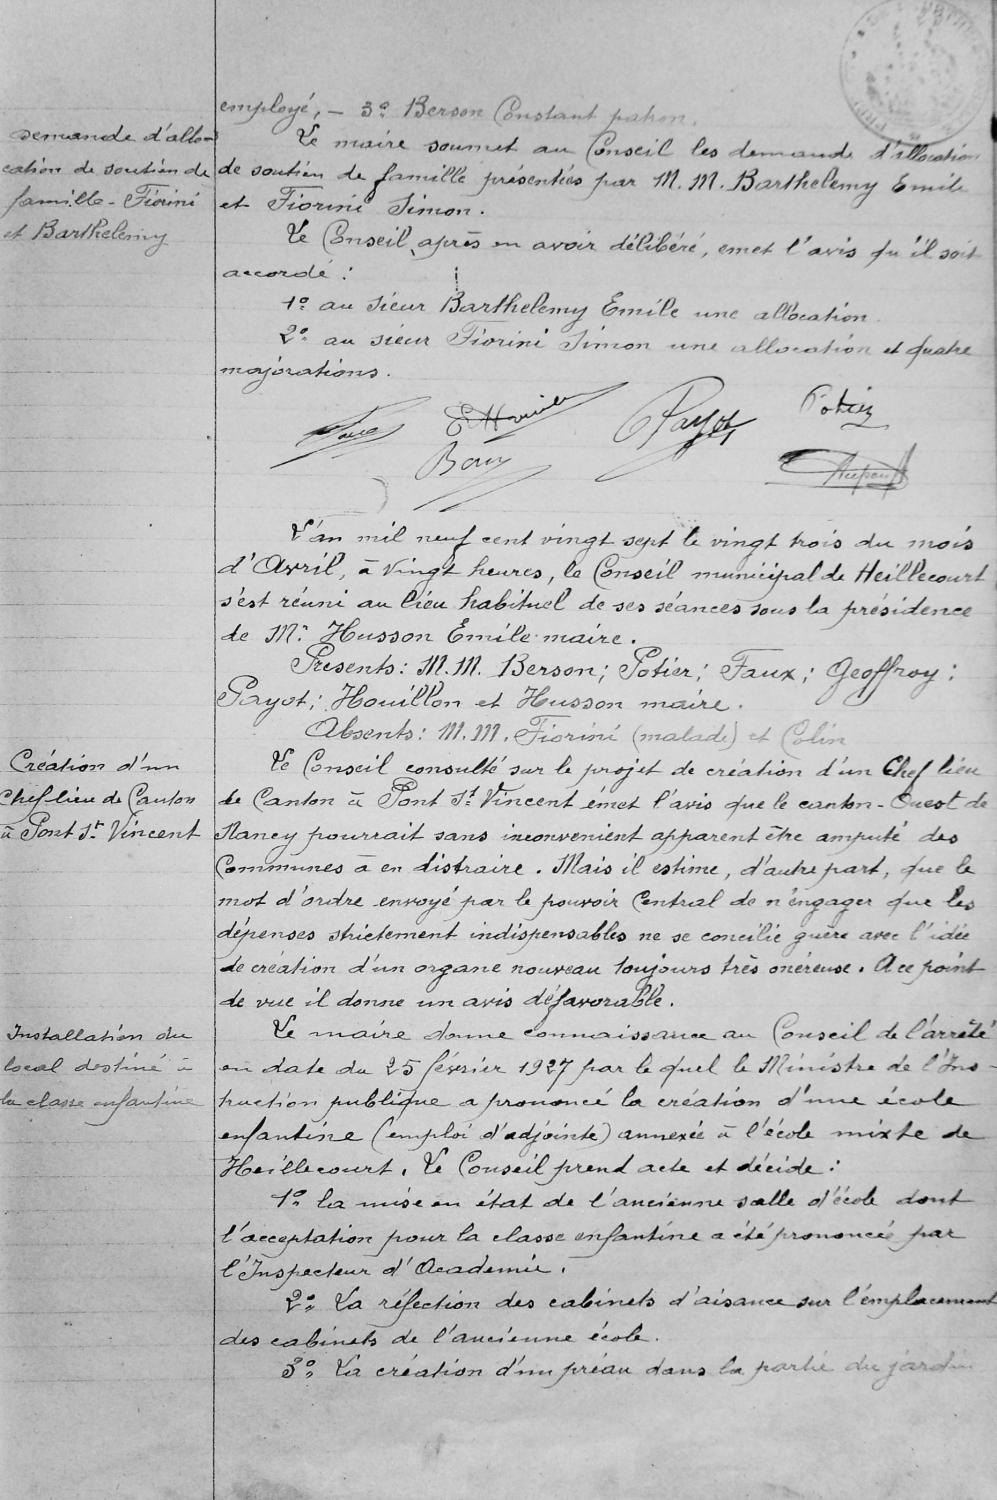 employé, – 3º Berson Constant patron.
Demande d'allo-
cation de soutien de
famille - Fiorini
et Barthelemy
Le maire soumet au Conseil les demande d'allocation
de soutien de famille présentées par M.M. Barthelemy Emile
et Fiorini Simon.
Le Conseil, après en avoir délibéré, emet l'avis qu'il soit
accordé :
1º au sieur Barthelemy Emile une allocation.
2º au sieur Fiorini Simon une allocation et quatre
majorations.
Potier
Payot
L'an mil neuf cent vingt sept le vingt trois du mois
d'Avril, à vingt heures, le Conseil municipal de Heillecourt
s'est réuni au lieu habituel de ses séances sous la présidence
de Mr Husson Emile maire.
Presents : M.M. Berson ; Potier ; Faux ; Geoffroy ;
Payot ; Houillon et Husson maire.
Absents : M.M. Fiorini (malade) et Colin
Création d'un
Chef lieu de Canton
à Pont St Vincent
Le Conseil consulté sur le projet de création d'un Chef lieu
de Canton à Pont St Vincent émet l'avis que le canton-Ouest de
Nancy pourrait sans inconvenient apparent être amputé des
Communes à en distraire. Mais il estime, d'autre part, que le
mot d'ordre envoyé par le pouvoir Central de n'engager que les
dépenses strictement indispensables ne se concilie guère avec l'idée
de création d'un organe nouveau toujours très onéreuse. A ce point
de vue il donne un avis défavorable.
Installation du
local destiné à
la classe enfantine
Le maire donne connaissance au Conseil de l'arrêté
en date du 25 février 1927 par le quel le Ministre de l'Ins-
truction publique a prononcé la création d'une école
enfantine (emploi d'adjointe) annexée à l'école mixte de
Heillecourt. Le Conseil prend acte et décide :
1º la mise en état de l'ancienne salle d'école dont
l'acceptation pour la classe enfantine a été prononcée par
l'Inspecteur d'Academie.
2º La réfection des cabinets d'aisance sur l'emplacement
des cabinets de l'ancienne école.
3º La création d'un préau dans la partie du jardin